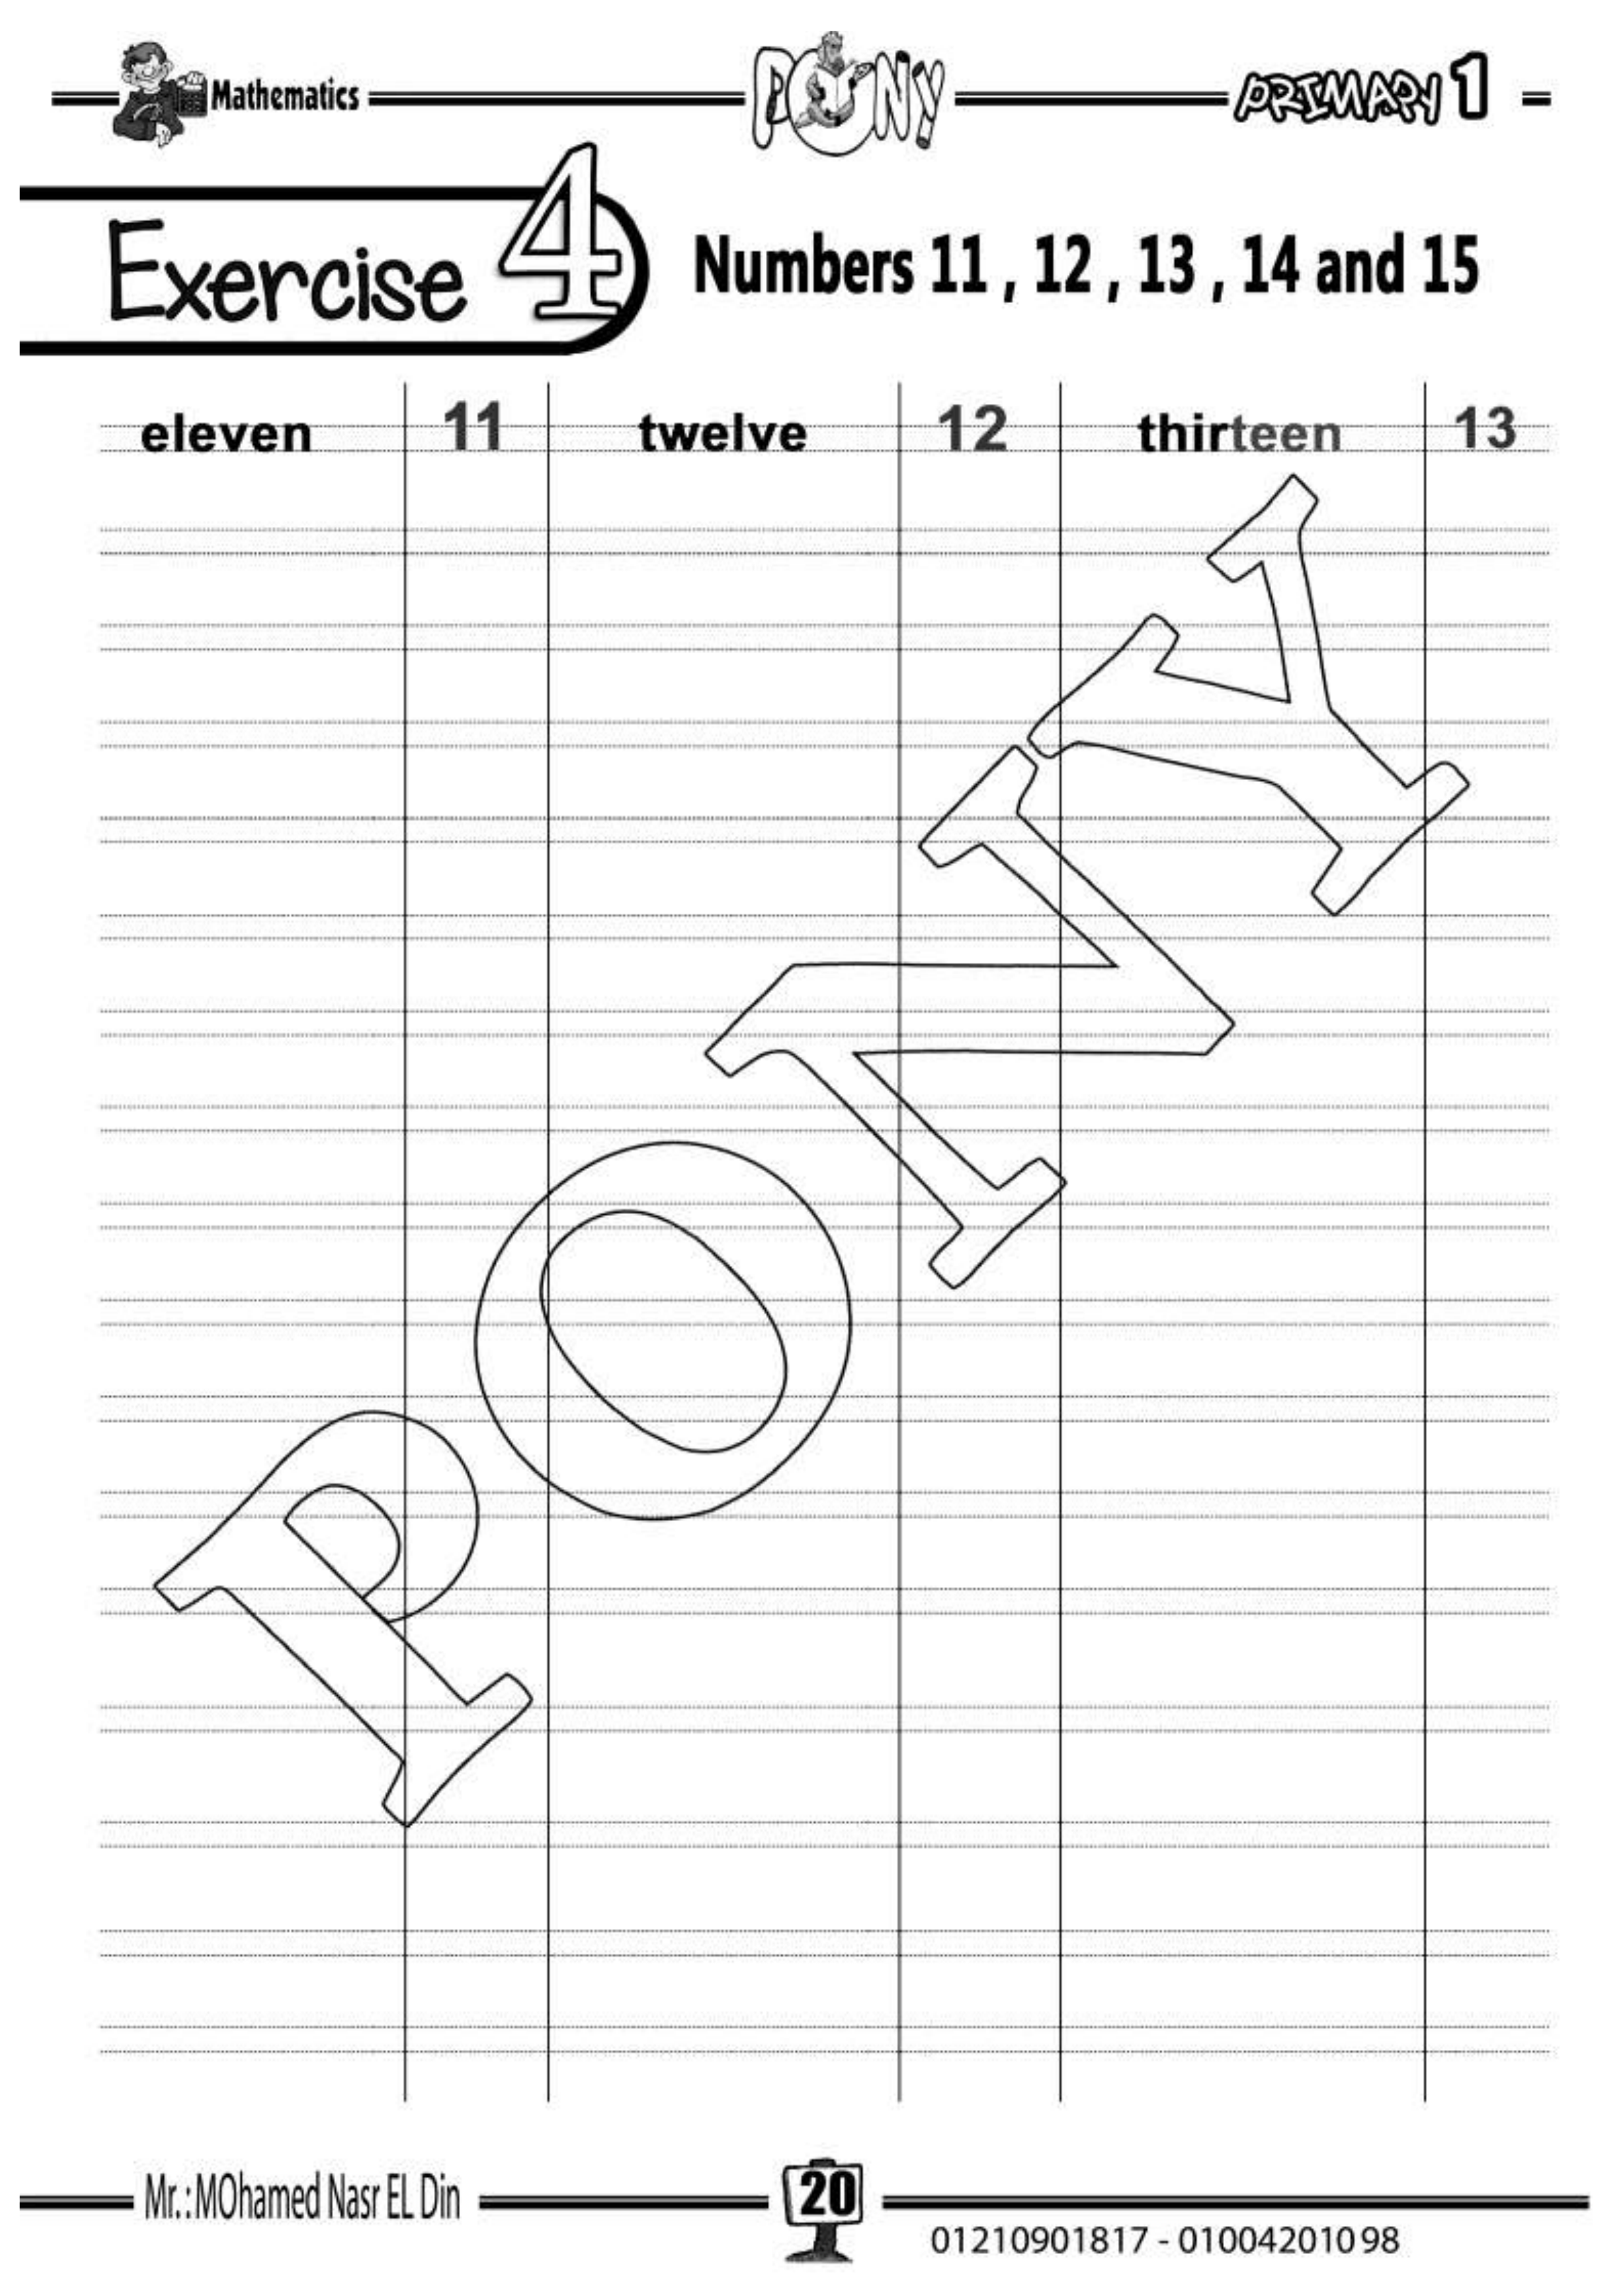 Mathematics PONY PRIMARY 1
Exercise 4 Numbers 11 , 12 , 13 , 14 and 15
eleven 11 twelve 12 thirteen 13
PONY
Mr.:MOhamed Nasr EL Din 20
01210901817 - 01004201098